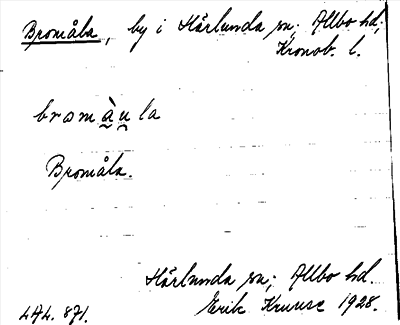 Bromåla, by i Härlunda sn; Allbo hd;
Kronob. l.
bromàu̯la
Bromåla.
Härlunda sn; Allbo hd.
474. 871. Erik Kruuse 1928.